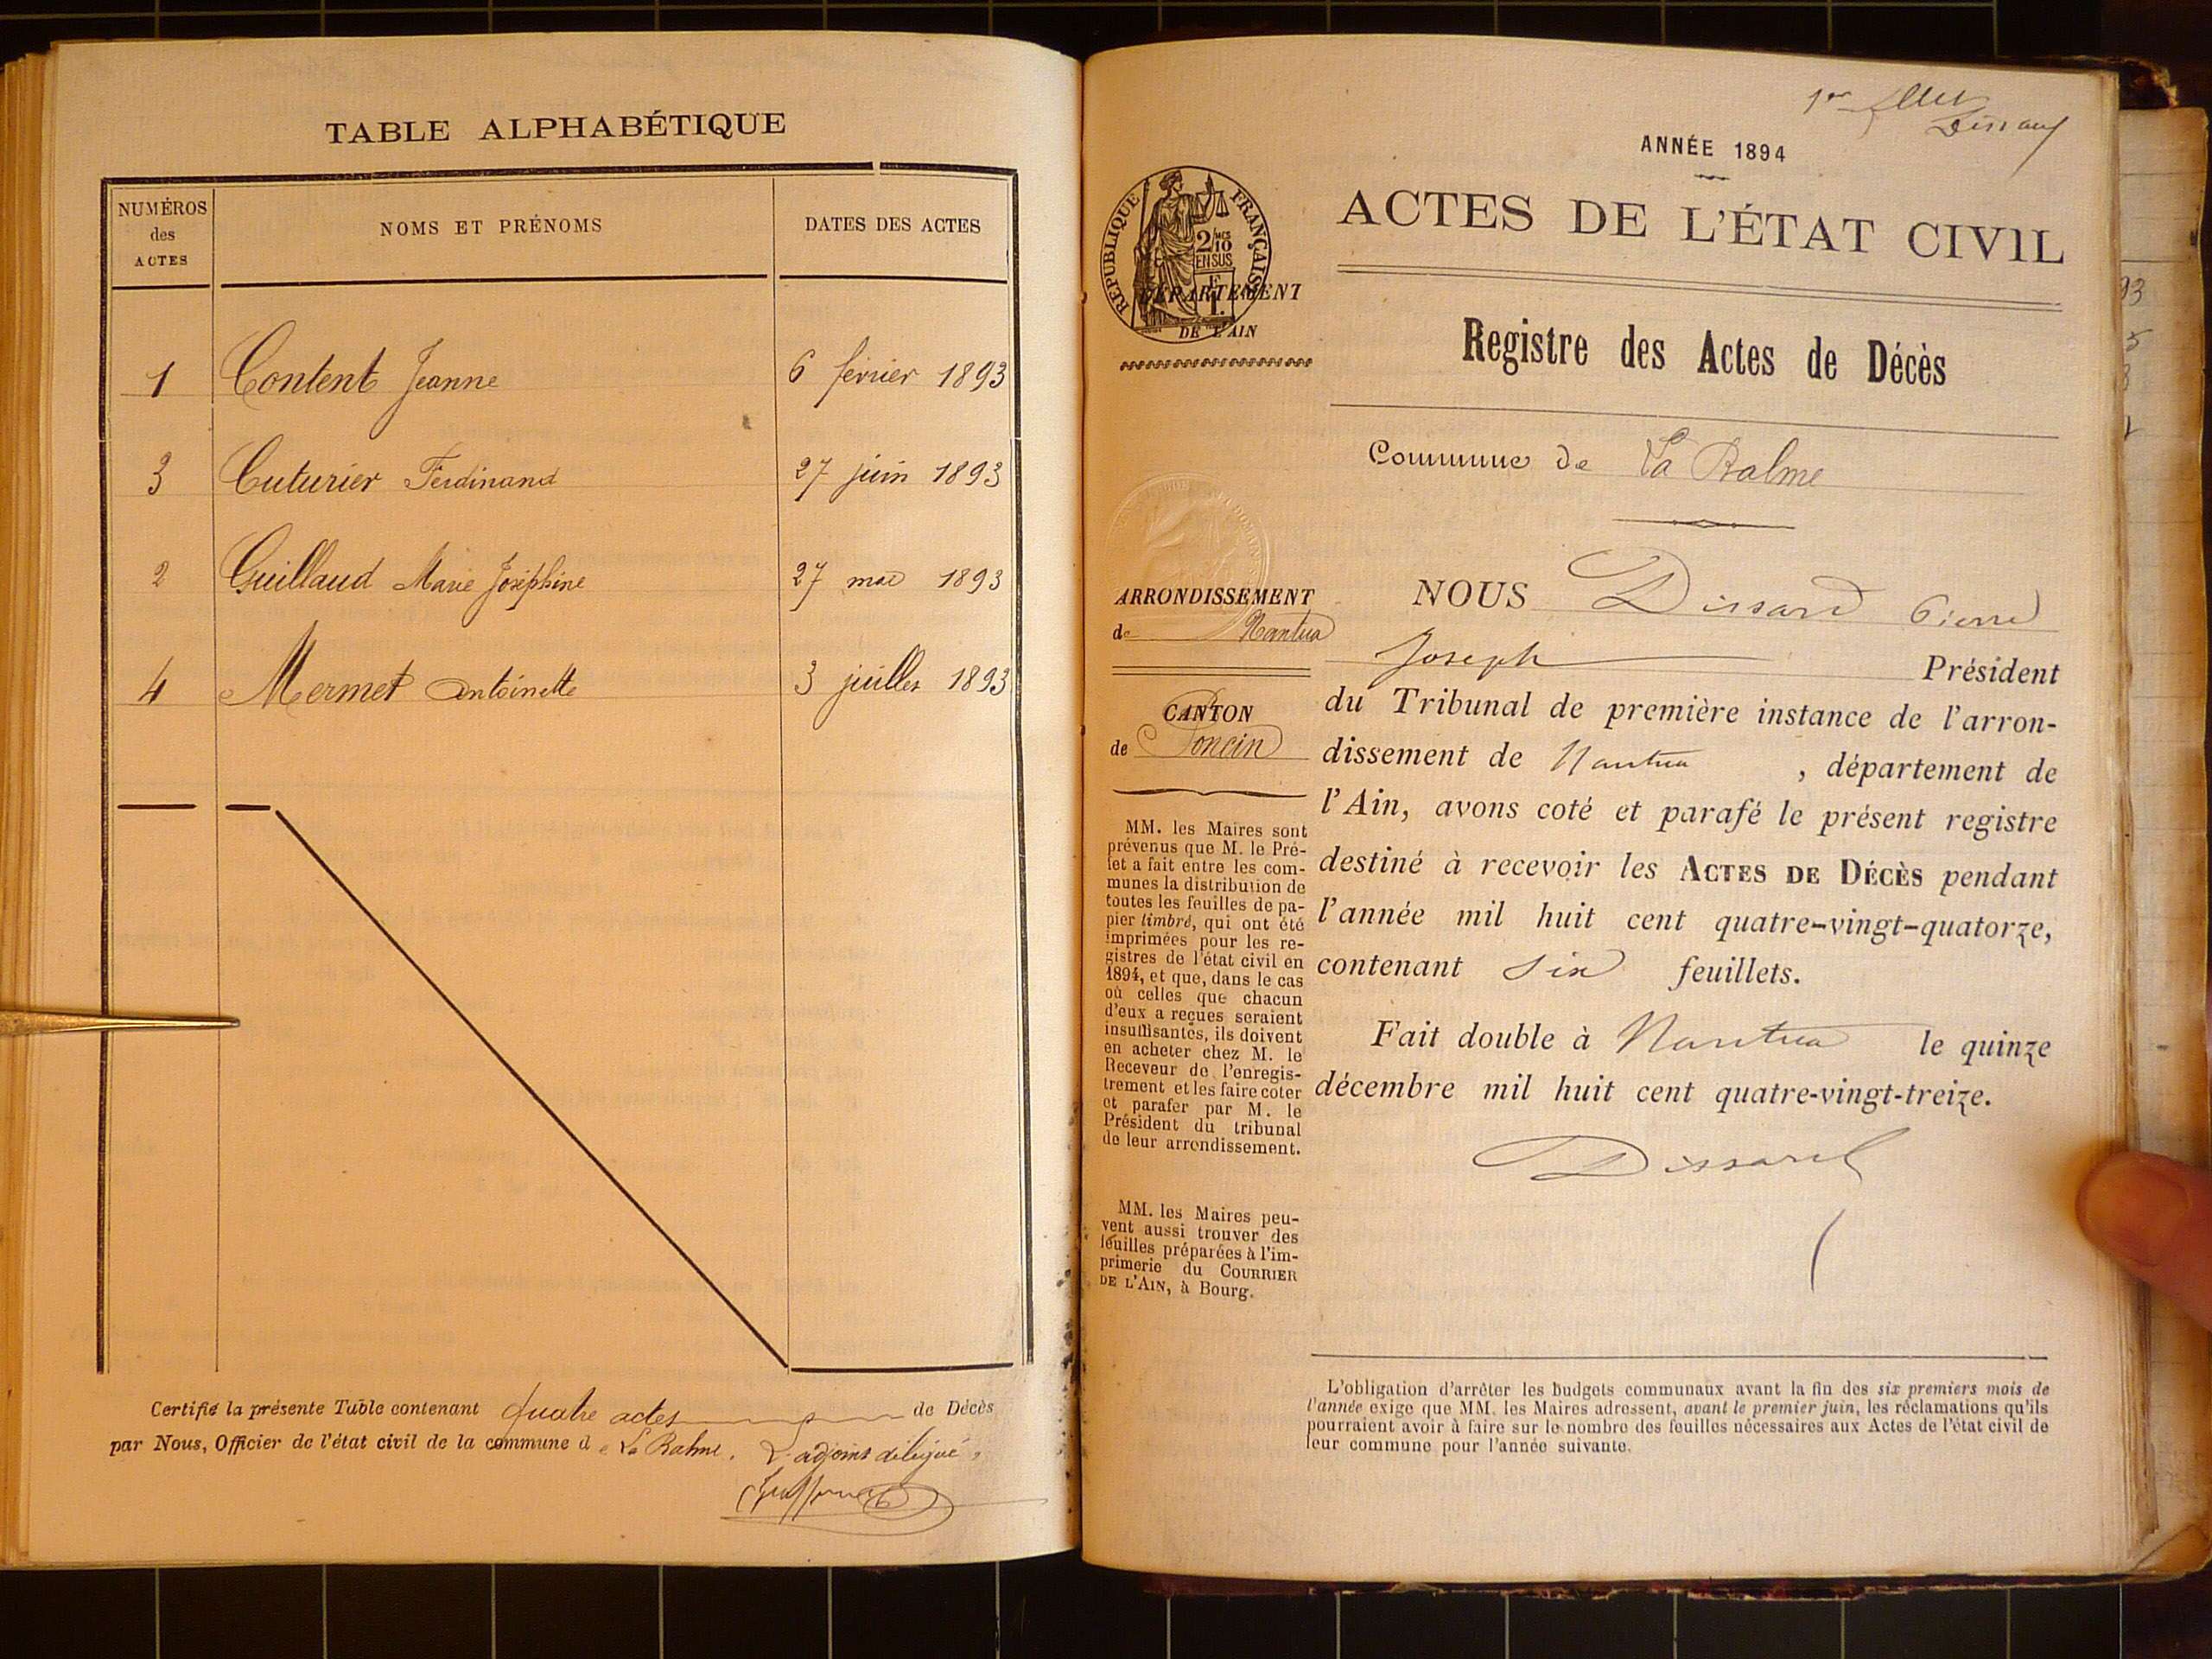 TABLE ALPHABÉTIQUE
NUMÉROS
des
ACTES
NOMS ET PRÉNOMS
DATES DES ACTES
1 Content Jeanne 6 février 1893
3 Cuturier Ferdinand 27 juin 1893
2 Guillaud Marie Joséphine 27 mai 1893
4 Mermet Antoinette 3 juillet 1893
Certifié la présente Table contenant quatre actes de Décès
par Nous, Officier de l'état civil de la commune de La Balme. L'adjoint délégué,
1er
Dissard
ANNÉE 1894
ACTES DE L'ÉTAT CIVIL
RÉPUBLIQUE FRANÇAISE
2/10
EN SUS
DÉPARTEMENT
DE L'AIN
Registre des Actes de Décès
Commune de La Balme
ARRONDISSEMENT
de Nantua
CANTON
de Poncin
MM. les Maires sont
prévenus que M. le Pré-
fet a fait entre les com-
munes la distribution de
toutes les feuilles de pa-
pier timbré, qui ont été
imprimées pour les re-
gistres de l'état civil en
1894, et que, dans le cas
où celles que chacun
d'eux a reçues seraient
insuffisantes, ils doivent
en acheter chez M. le
Receveur de l'enregis-
trement et les faire coter
et parafer par M. le
Président du tribunal
de leur arrondissement.
MM. les Maires peu-
vent aussi trouver des
feuilles préparées à l'im-
primerie du COURRIER
DE L'AIN, à Bourg.
NOUS Dissard Pierre
Joseph Président
du Tribunal de première instance de l'arron-
dissement de Nantua , département de
l'Ain, avons coté et parafé le présent registre
destiné à recevoir les ACTES DE DÉCÈS pendant
l'année mil huit cent quatre-vingt-quatorze,
contenant six feuillets.
Fait double à Nantua le quinze
décembre mil huit cent quatre-vingt-treize.
Dissard
L'obligation d'arrêter les budgets communaux avant la fin des six premiers mois de
l'année exige que MM. les Maires adressent, avant le premier juin, les réclamations qu'ils
pourraient avoir à faire sur le nombre des feuilles nécessaires aux Actes de l'état civil de
leur commune pour l'année suivante.